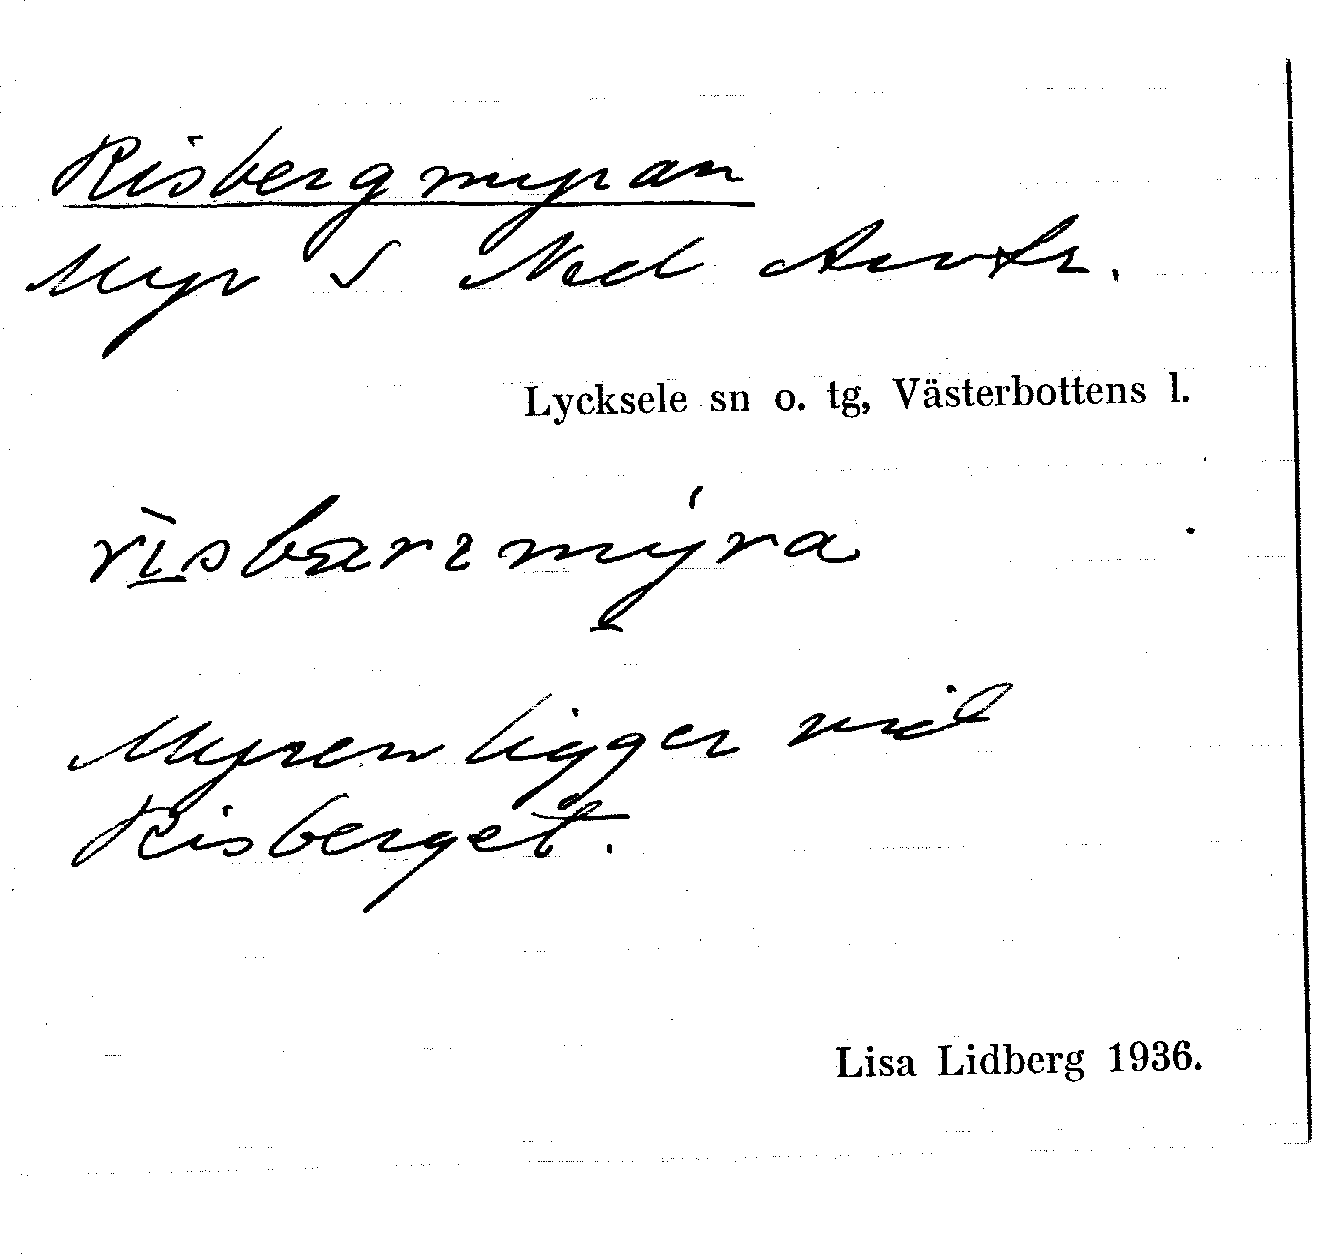 Risbergmyran
Myr S Ned
Lycksele sn o. tg, Västerbottens l.
Myren ligger vid
Risberget.
Lisa Lidberg 1936.